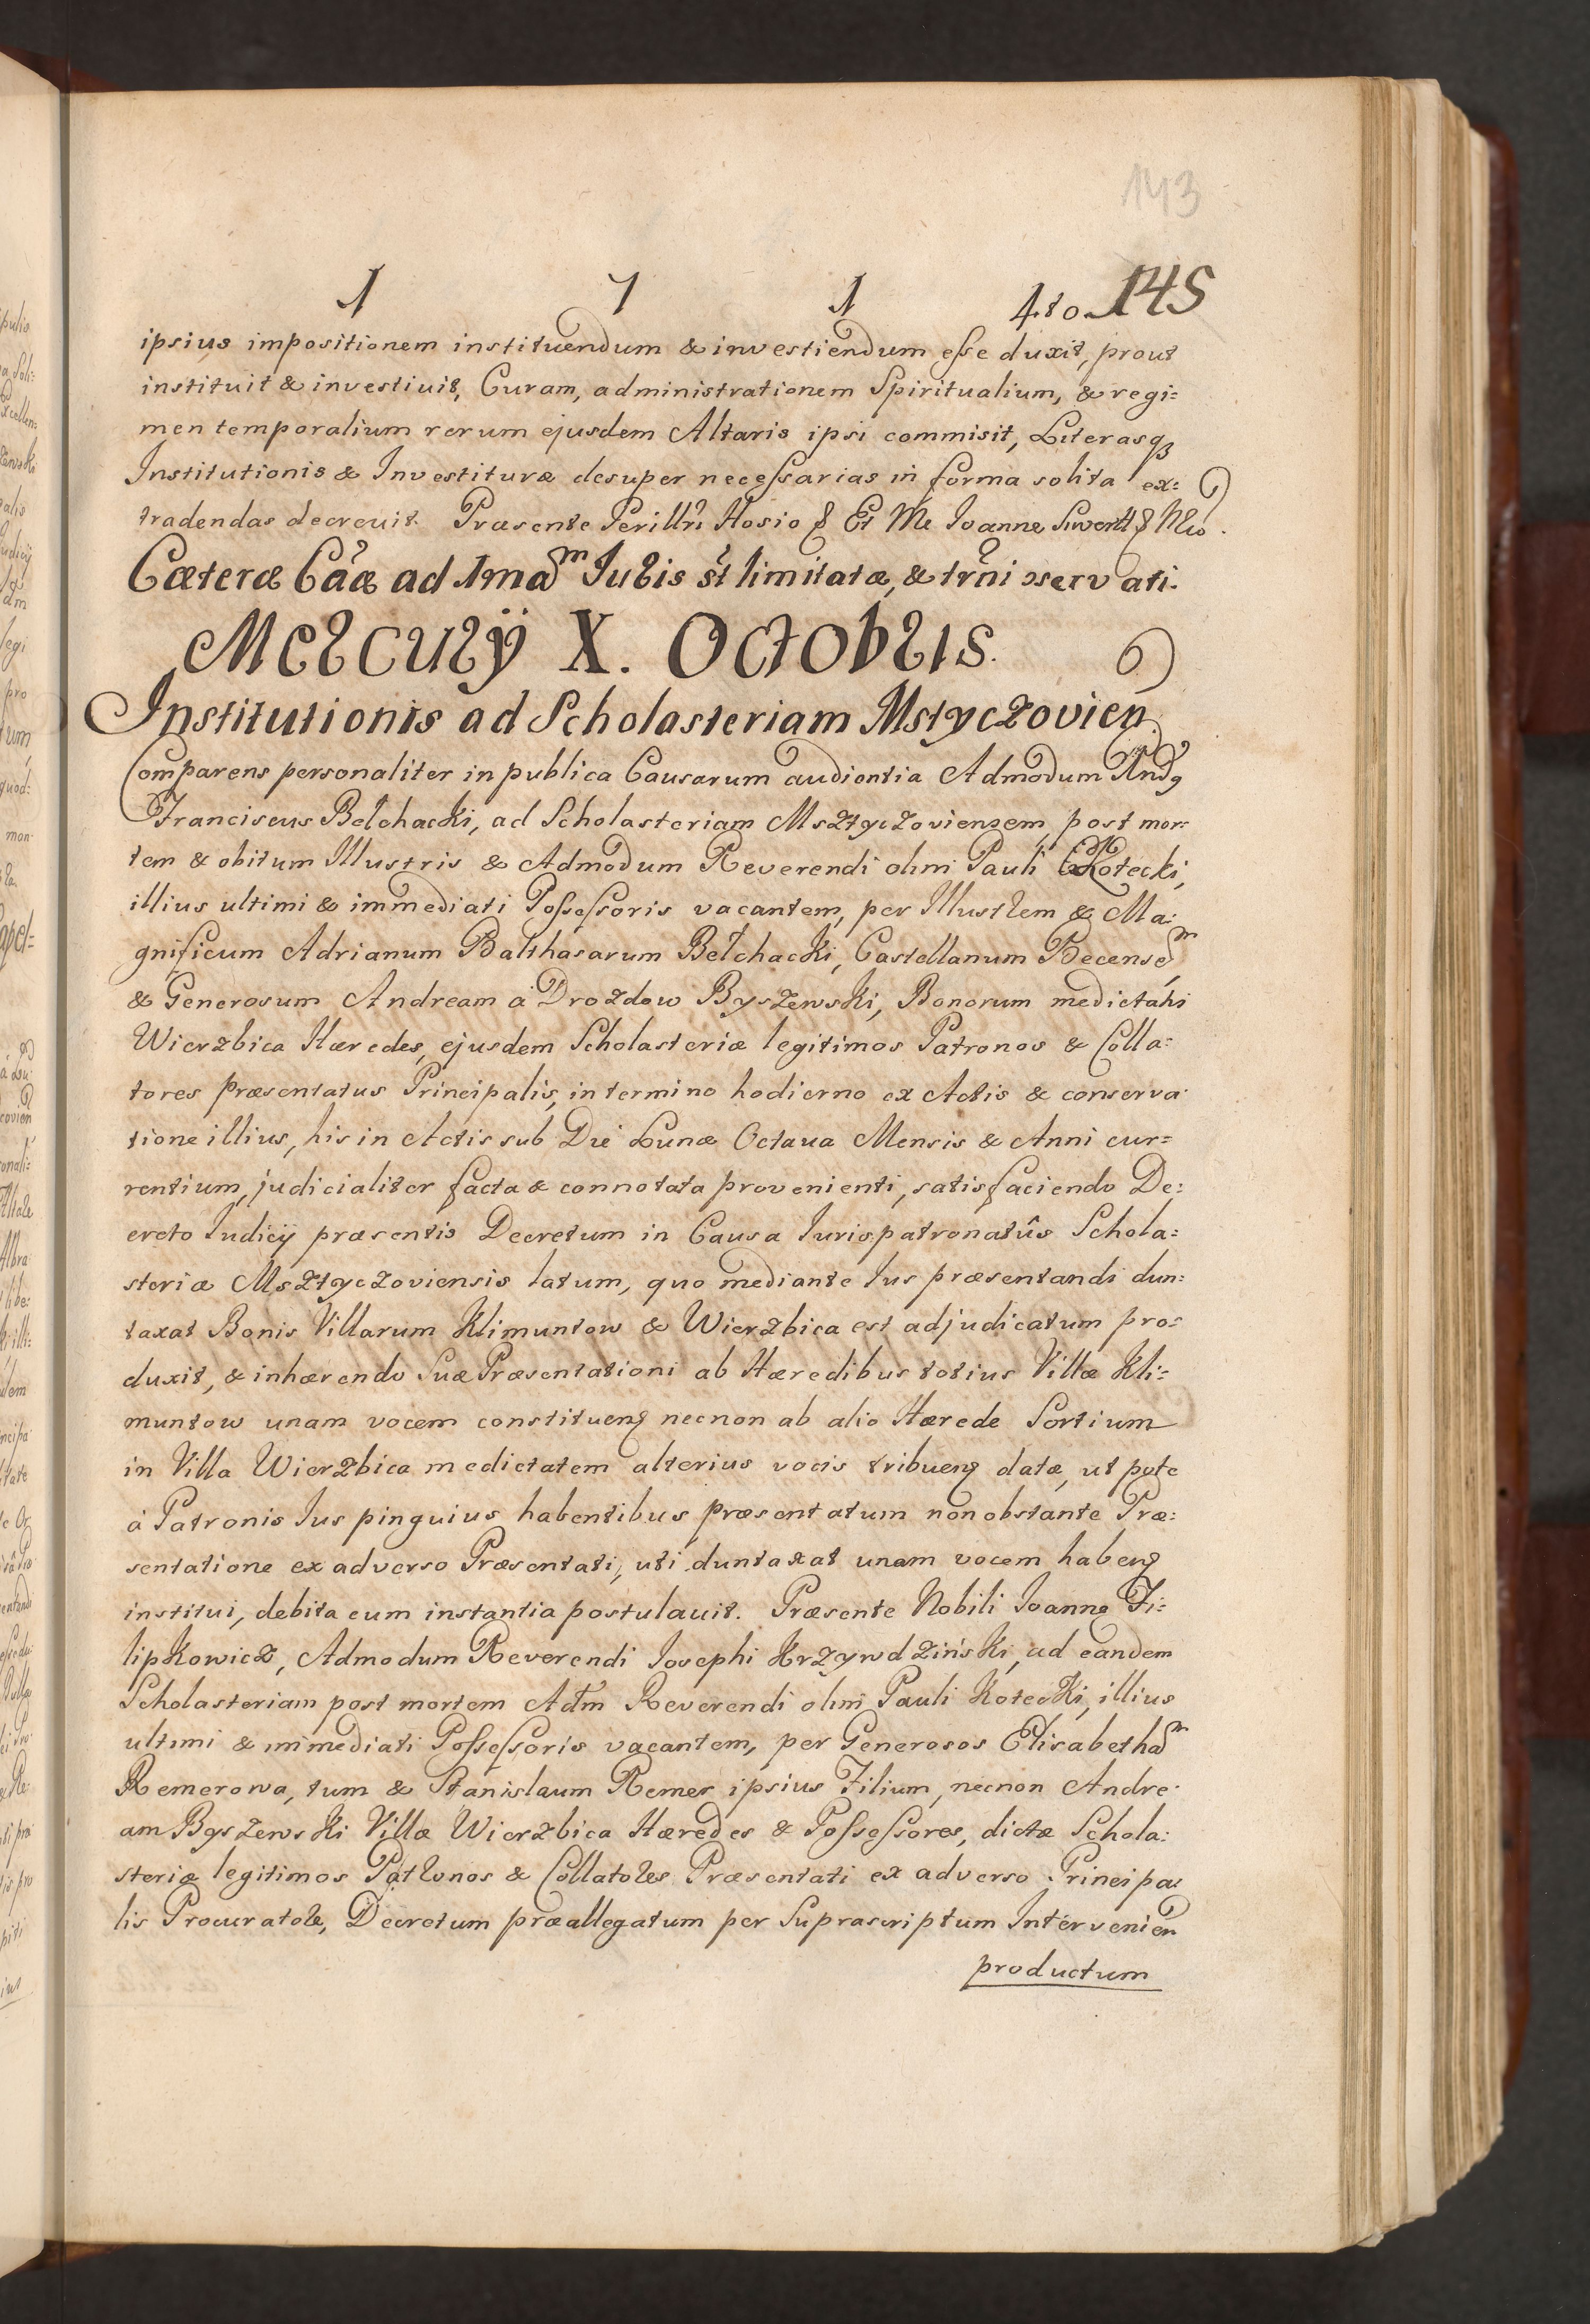 143
1 7 1 4to 145
ipsius impositionem instituendum & investiendum esse duxit, prout
instituit & investivit, Curam, administrationem Spiritualium, & regi:
men temporalium rerum ejusdem Altaris ipsi commisit, Literasqꝫ
Institutionis & Investituræ desuper necessarias in forma solita ex:
tradendas decrevit. Præsente Perillri Hosio & Et Me Joanne
Cæteræ Cãæ ad 1mam Jubis st limitatæ, & trñi ɔservati.
Mercurÿ X. Octobris.
Institutionis ad Scholasteriam Mstyczovien
Comparens personaliter in publica Causarum audientia Admodum Rnd9
Franciscus Bełchacki, ad Scholasteriam Msztyczoviensem, post mor:
tem & obitum Illustris & Admodum Reverendi olim Pauli Kotecki,
illius ultimi & immediati Possessoris vacantem, per Illustrem & Ma:
gnificum Adrianum Balthasarum Bełchacki, Castellanum Becensem
& Generosum Andream à Drozdow Byszewski, Bonorum medietatis
Wierzbica Hæredes, ejusdem Scholasteriæ legitimos Patronos & Colla:
tores præsentatus Principalis, in termino hodierno ex Actis & conserva:
tione illius, his in Actis sub Die Lunæ Octava Mensis & Anni cur:
rentium, judicialiter facta & connotata provenienti, satisfaciendo De:
creto Judicij præsentis Decretum in Causa Jurispatronatûs Schola:
steriæ Msztyczoviensis latum, quo mediante Jus præsentandi dun:
taxat Bonis Villarum Klimuntow & Wierzbica est adjudicatum pro:
duxit, & inhærendo Suæ Præsentationi ab Hæredibus totius Villæ Kli:
muntow unam vocem constitueñ necnon ab alio Hærede Sortium
in Villa Wierzbica medietatem alterius vocis tribueñ datæ, ut pote
à Patronis Jus pinguius habentibus præsentatum non obstante Præ:
sentatione ex adverso Præsentati, uti duntaxat unam vocem habeñ
institui, debita cum instantia postulavit. Præsente Nobili Joanne Fi:
lipkowicz, Admodum Reverendi Josephi Krzywdziński, ad eandem
Scholasteriam post mortem Adm Reverendi olim Pauli Kotecki, illius
ultimi & immediati Possessoris vacantem, per Generosos Elisabetham
Remerowa, tum & Stanislaum Remer ipsius Filium, necnon Andre:
am Byszewski Villæ Wierzbica Hæredes & Possessores, dictæ Schola:
steriæ legitimos Patronos & Collatores Præsentati ex adverso Principa:
lis Procuratore, Decretum præallegatum per Suprascriptum Intervenien
productum